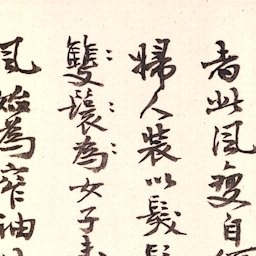 者此風變自何
婦人裝以髮
雙鬟為女子未
風始為窄袖